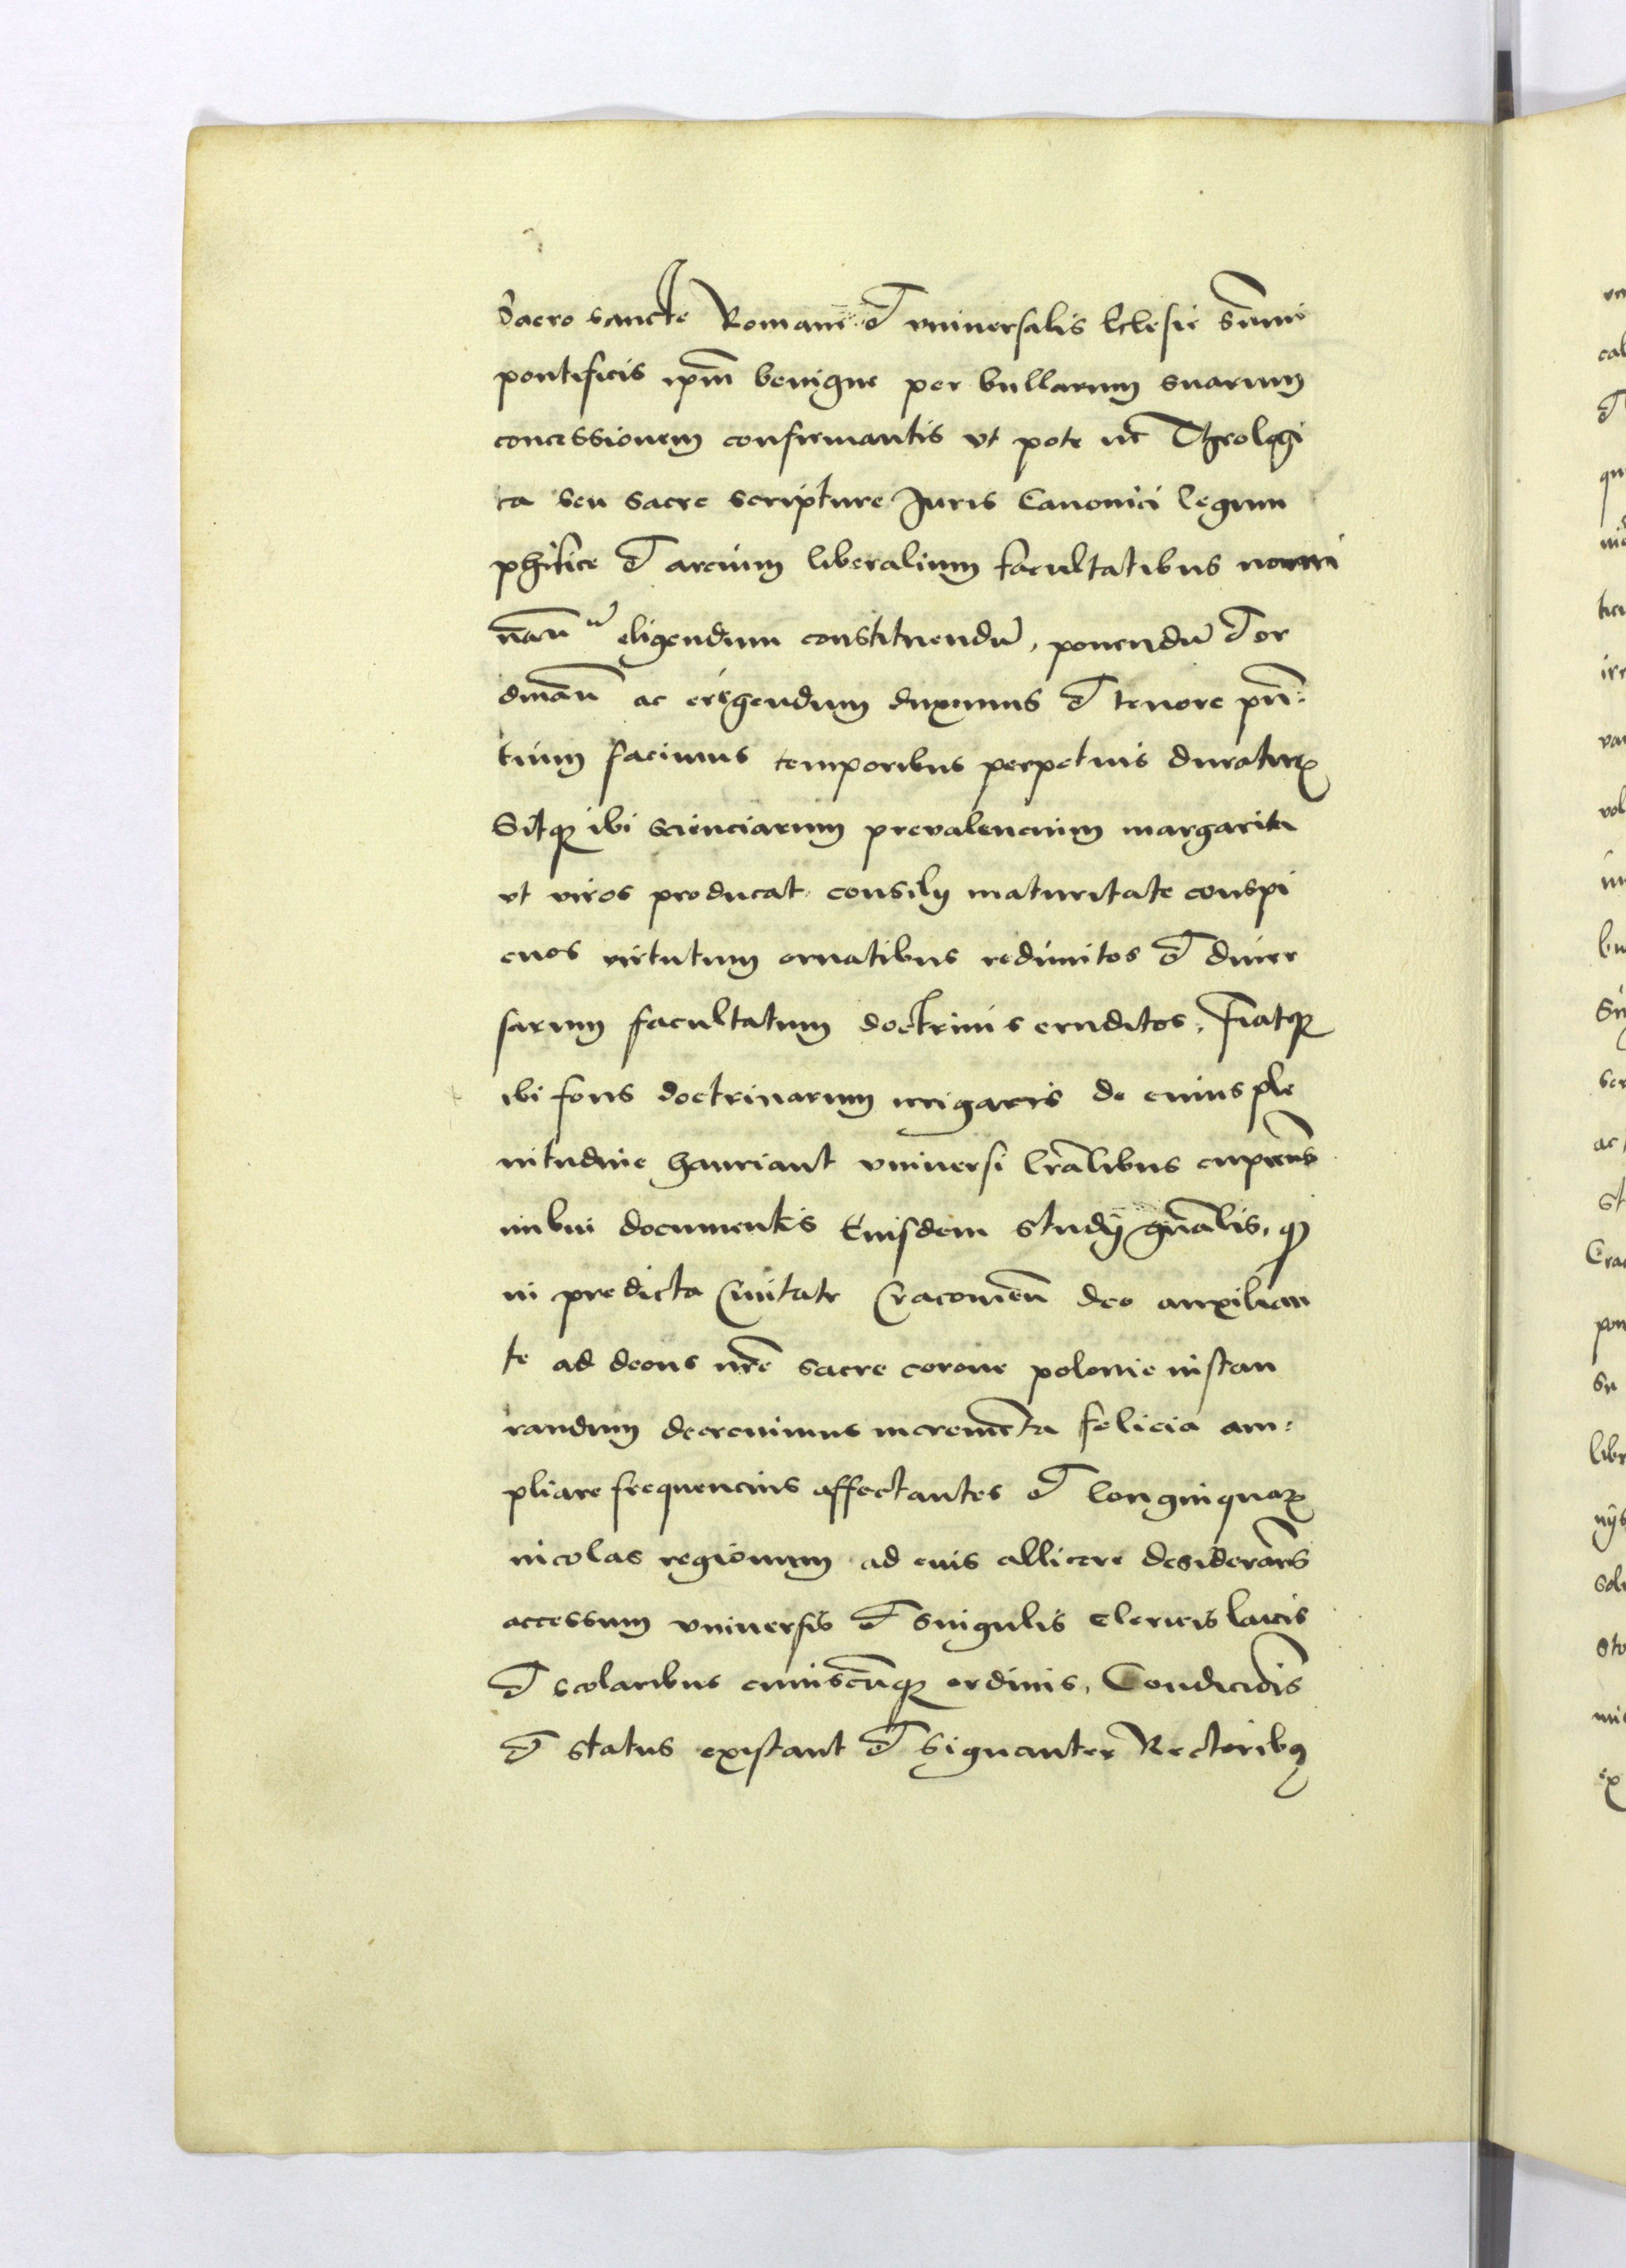 Sacro sancte Romane et vniuersalis Eclesie sūmi
pontificis ipm̄ benigne per bullarum suarum
concessionem confirmantis vt pote in Theologi
ca seu sacre scripture Juris Canonici legum
phisice et arcium liberalium facultatibus nomi
nan̄ eligendum constituendū, ponendū et or
dinan̄ ac erigendum duximus et tenore pn̄:
tium facimus temporibus perpetuis duraturꝝ
Sitqꝫ ibi scienciarum prevalencium margarita
vt viros producat consilij maturitate conspi
cuos virtutum ornatibus redimitos et diuer
sarum facultatum doctrinis eruditos, Fiatqꝫ
ibi fons doctrinarum irriguus de cuius ple
nitudine hauriant vniuersi lr̄alibus cupien̄s
imbui documentis Euisdem studij gn̄alis, qꝫ
in predicta Ciuitate Cracouien̄ deo auxilian
te ad decus nr̄e sacre corone polonie instau
randum decreuimus incremēta felicia am:
pliare frequencius affectantes et longinquaꝝ
incolas regionum ad euis allicere desideran̄s
accessum vniuersis et singulis clericis laicis
et scolaribus cuiuscūqꝫ ordinis, Condicōis
et status existant et signanter Rectoribꝯ